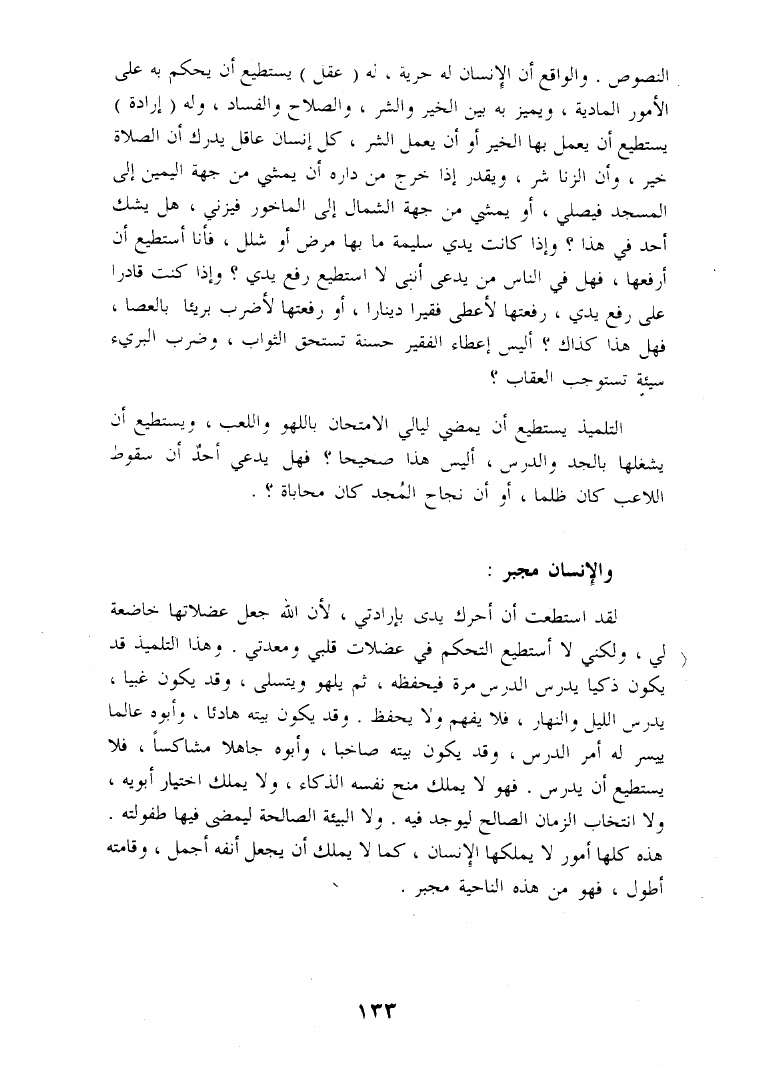 النصوص . والواقع أن الإنسان له حرية ، له ( عقل ) يستطيع أن يحكم به على
الأمور المادية ، ويميز به بين الخير والشر ، والصلاح والفساد ، وله ( إرادة )
يستطيع أن يعمل بها الخير أو أن يعمل الشر ، كل إنسان عاقل يدرك أن الصلاة
خير ، وأن الزنا شر ، ويقدر إذا خرج من داره أن يمشي من جهة اليمين إلى
المسجد فيصلي ، أو يمشي من جهة الشمال إلى الماخور فيزني ، هل يشك
أحد في هذا ؟ وإذا كانت يدي سليمة ما بها مرض أو شلل ، فأنا أستطيع أن
أرفعها ، فهل في الناس من يدعى أننى لا استطيع رفع يدي ؟ وإذا كنت قادرا
على رفع يدي ، رفعتها لأعطى فقيرا دينارا ، أو رفعتها لأضرب بريئا بالعصا ،
فهل هذا كذاك ؟ أليس إعطاء الفقير حسنة تستحق الثواب ، وضرب البريء
سيئة تستوجب العقاب ؟
التلميذ يستطيع أن يمضي ليالي الامتحان باللهو واللعب ، ويستطيع أن
يشغلها بالجد والدرس ، أليس هذا صحيحا ؟ فهل يدعي أحدٌ أن سقوط
اللاعب كان ظلما ، أو أن نجاح المُجد كان محاباة ؟ .
والإنسان مجبر :
لقد استطعت أن أحرك يدى بإرادتي ، لأن الله جعل عضلاتها خاضعة
لي ، ولكني لا أستطيع التحكم في عضلات قلبي ومعدتي . وهذا التلميذ قد
يكون ذكيا يدرس الدرس مرة فيحفظه ، ثم يلهو ويتسلى ، وقد يكون غبيا ،
يدرس الليل والنهار ، فلا يفهم ولا يحفظ . وقد يكون بيته هادئا ، وأبوه عالما
ييسر له أمر الدرس ، وقد يكون بيته صاخبا ، وأبوه جاهلا مشاكساً ، فلا
يستطيع أن يدرس . فهو لا يملك منح نفسه الذكاء ، ولا يملك اختيار أبويه ،
ولا انتخاب الزمان الصالح ليوجد فيه . ولا البيئة الصالحة ليمضى فيها طفولته .
هذه كلها أمور لا يملكها الإنسان ، كما لا يملك أن يجعل أنفه أجمل ، وقامته
أطول ، فهو من هذه الناحية مجبر .
١٣٣